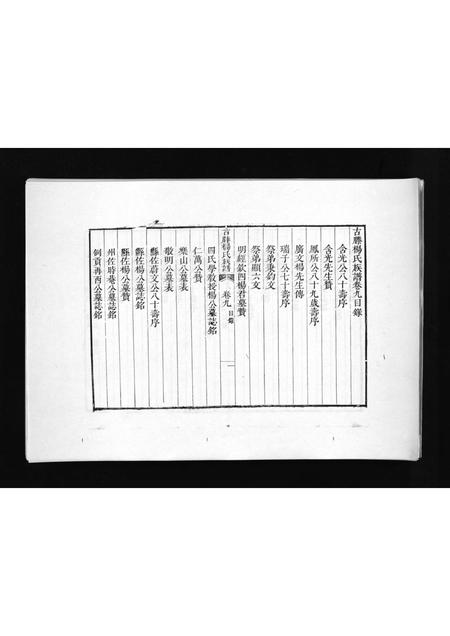 古滕楊氏族譜卷九目錄
含光公八十壽序
含光先生贊
鳳所公八十九歲壽序
廣文楊先生傳
瑞子公七十壽序
祭弟秉鈞文
祭弟顯六文
明經欽四楊君墓贊
古滕楊氏族譜 卷九 目錄 一
四氏學教授楊公墓誌銘
仁萬公贊
樂山公墓表
敬明公墓表
縣佐蔚文公八十壽序
縣佐楊公墓誌銘
縣佐楊公墓贊
州佐時菴公墓誌銘
例貢冉西公墓誌銘